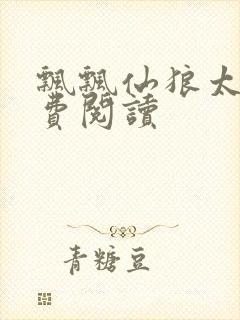 飄飄仙狼太
費閱讀
青糖豆